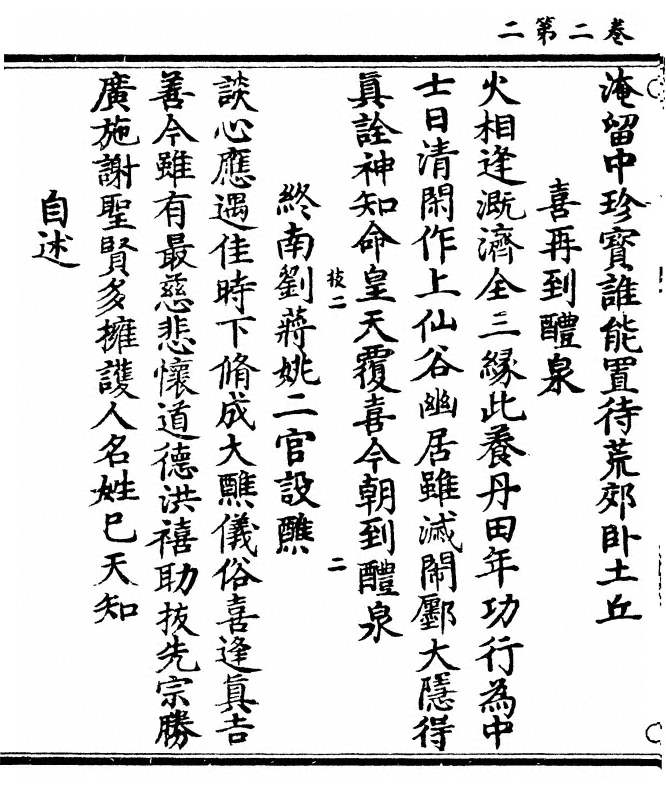 二第二卷
淹留中珍寳誰能置待荒郊卧土丘
喜再到醴泉
火相逢溉濟全三緣此養丹田年功行為中
士日清閑作上仙谷幽居雖滅鬧鄽大隱得
真詮神知命皇天覆喜今朝到醴泉
枝二
二
終南劉蔣姚二官設醮
談心應遇佳時下脩成大醮儀俗喜逢真吉
善今雖有最慈悲懷道德洪禧助拔先宗勝
廣施謝聖賢多擁護人名姓巳天知
自述